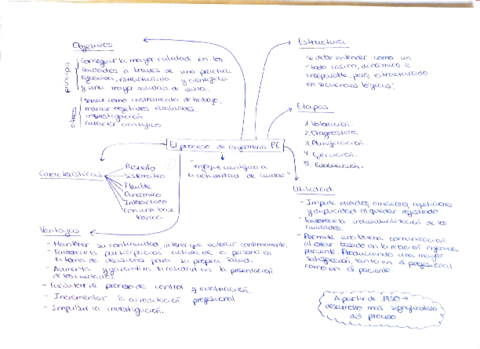 Objetivos
principal
Conseguir la mayor calidad en los
cuidados a través de una práctica
rigurosa, estructurada y científica
y una mayor
otros
Servir como instrumento de trabajo,
marcar objetivos cuidadores,
investigación
carácter científico
Estructura
Se debe entender como un
todo continuo, dinámico e
inseparable, pero, estructurado
en secuencias lógicas.
Etapas
1. Valoración.
2. Diagnóstico.
3. Planificación
4. Ejecución.
5. Evaluación.
El proceso de enfermería PE
"enfoque sistemático a
la actividad de cuidar"
Características
Resuelto
Sistemático
Flexible
Dinámico
Interactivo
con una base
teórica.
Utilidad
- Impide olvidos, omisiones, repeticiones
y duplicidad al quedar registrado
- Favorece la individualización de los
cuidados.
- Permite una buena comunicación
al estar basado en la relación
paciente. Produciendo una mayor
satisfacción, tanto en el profesional
como en el paciente
Ventajas
- Mantener su continuidad, al tener que evaluar continuamente.
- Favorecer la participación activa de la persona en
la toma de decisiones para su propia salud.
- Aumenta y garantiza la calidad en la prestación
de los cuidados.
- Facilitar el proceso de control y evaluación.
- Incrementar la acreditación profesional
- Impulsar la investigación.
A partir de 1950 →
desarrollo más significativo
del proceso